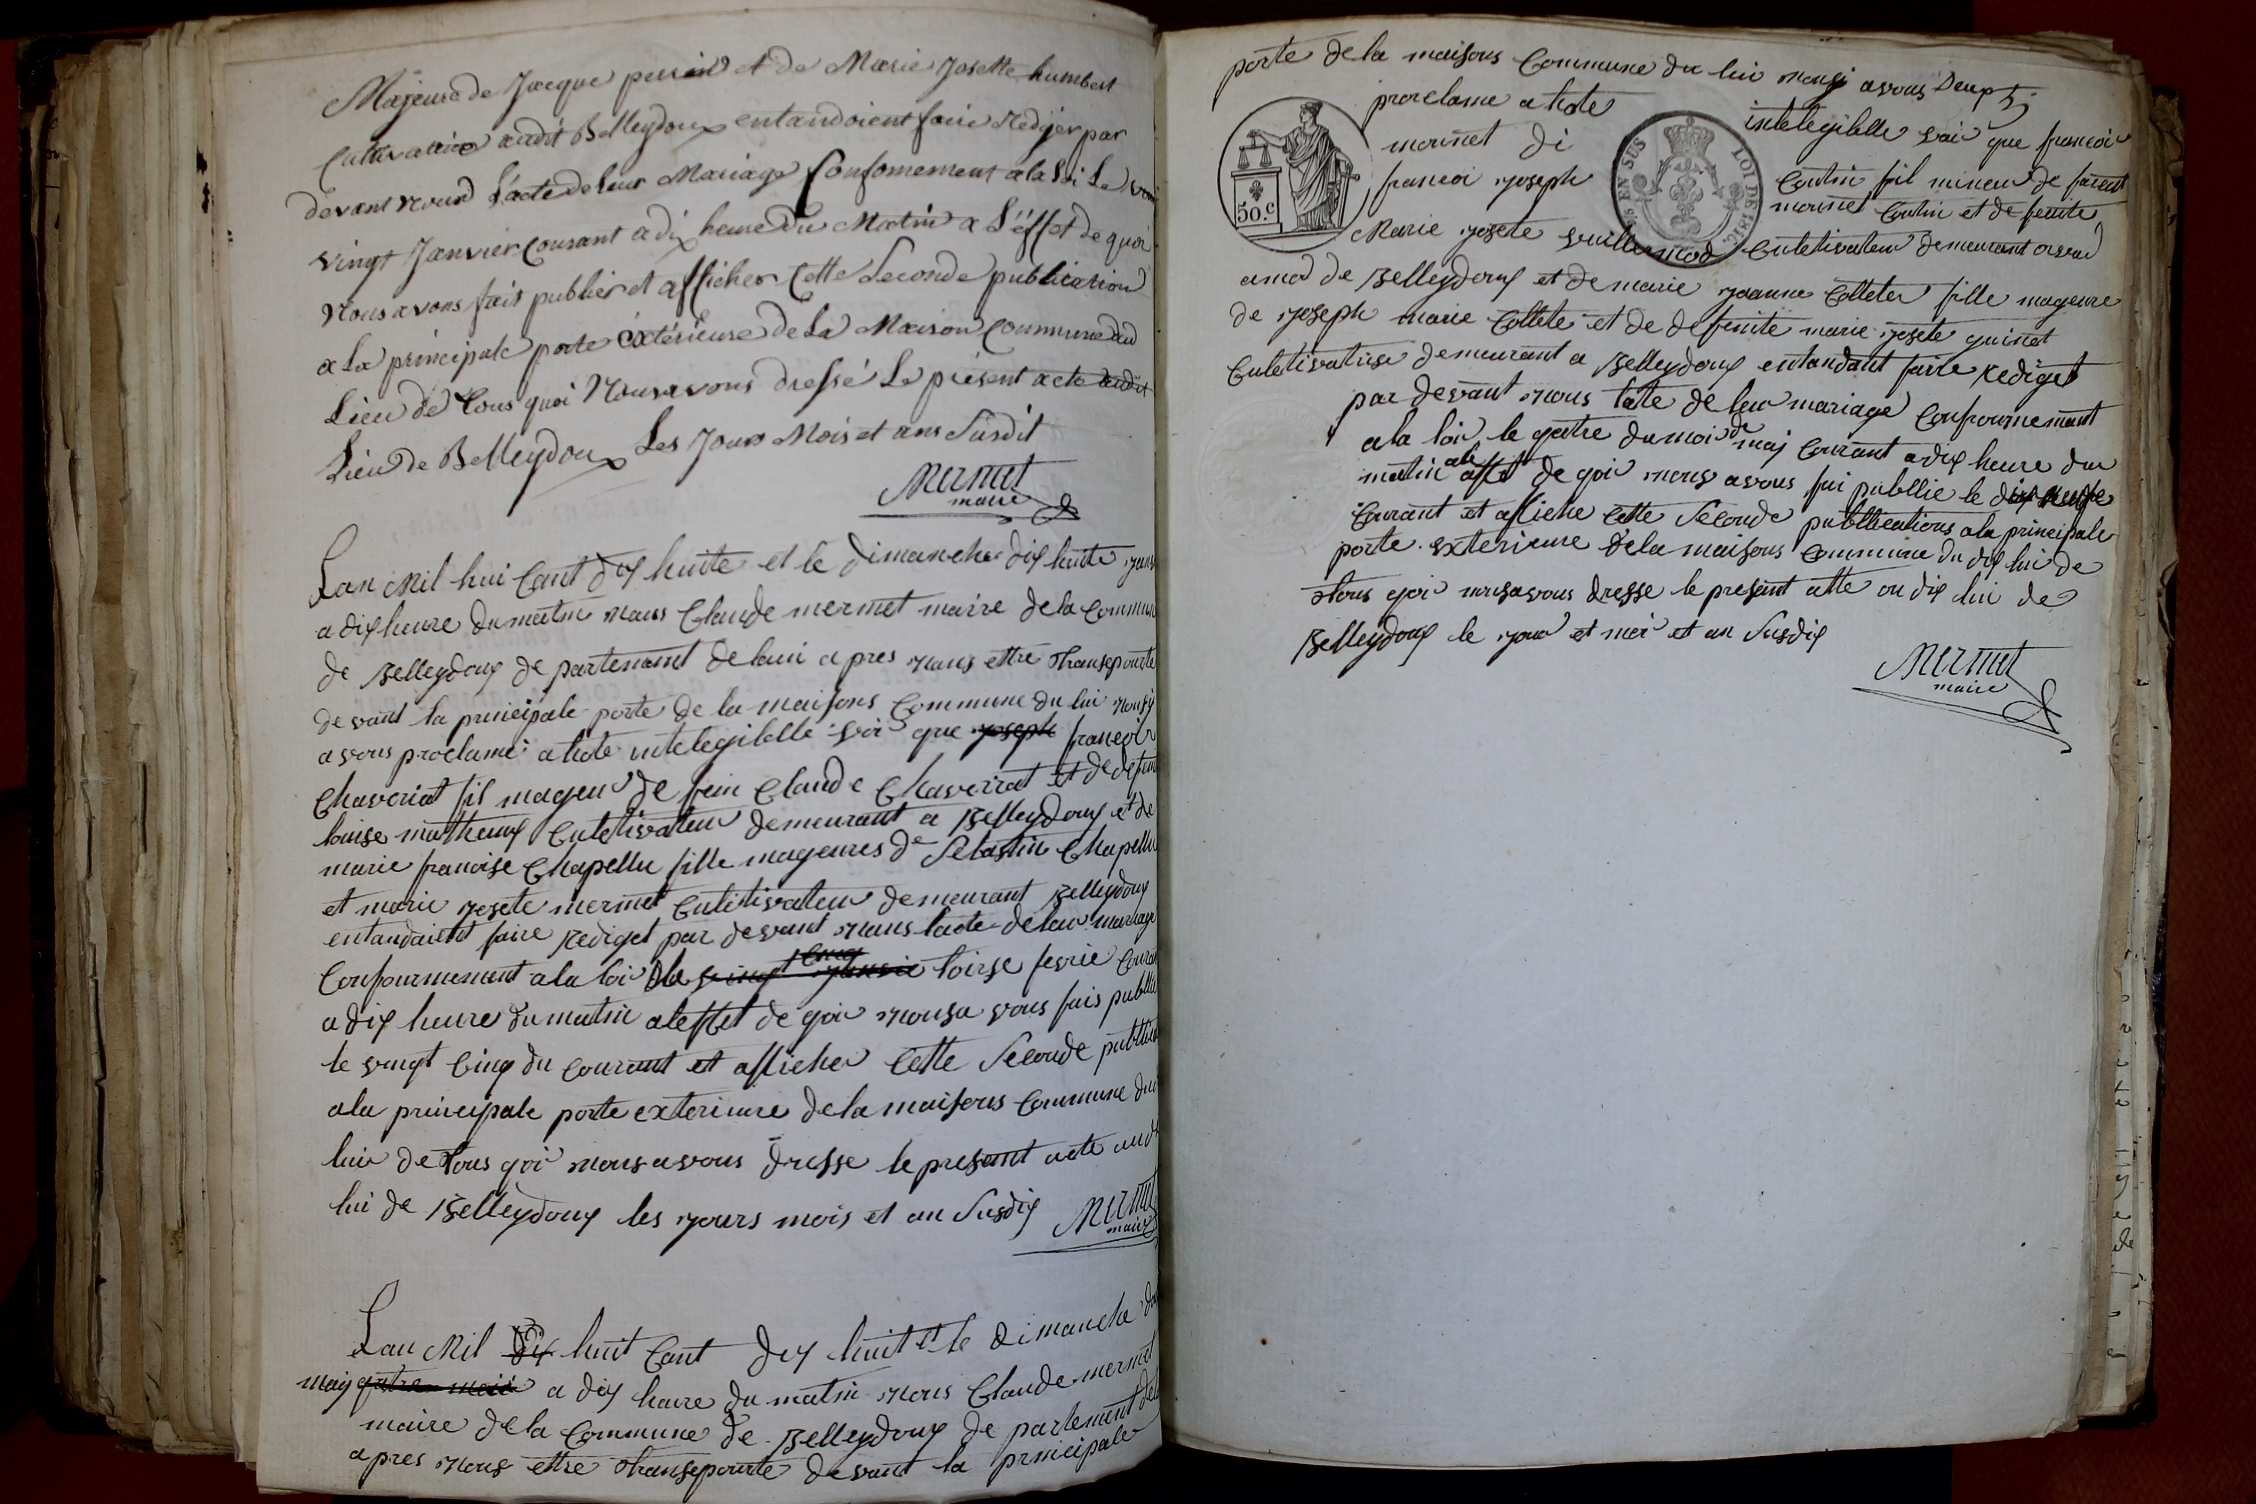 Majeure de Jacque perrin et de Marie Josette humbert
Cultivatrice audit Belleydoux entandoient faire rediger par
devant nous L'acte de leur Mariage Conformement a la Loi Le
vingt Janvier Courant a dix heure du Matin a L'effet de quoi
Nous avons fait publier et afficher Cette Seconde publication
a La principale porte extérieure de La Maison Commune du
Lieu de tous quoi Nous avons dressé Le présent acte audit
Lieu de Belleydoux Les Jours Mois et ans Susdit
Mermet
maire
Lan Mil hui Cant dix huite et le dimanche dix huite janv
a dix heure du matin nous Claude mermet maire de la Commune
de Belleydoux de partement de lain apres nous ettre transeporte
devant la principale porte de la maisons Commune du lui nousj
avons proclame a hote intelegibelle voi que joseph francoi
Chaveriat fil mageu de feiu Claude Chaverrat et de defun
louise matheux Culetivateu demeurant a Belleydoux et de
marie francoise Chapellu fille mageures de Sebastin Chapellu
et marie josete mermet Culitivateu demeurant Belleydoux
entandaient faire rediget par devant nous lacte de leur mariage
Confournement a la loi le vingt Cinq janvie toirse fevrie Couran
a dix heure du matin a leffet de qoi nousa vons fais publie
le vingt Cinq du Courant et aflicher Cette Seconde publica
a la principale porte exterieure de la maisons Commune du
lui de tous qoi nous avons dresse le presant acte au d
lui de Belleydoux les jours mois et an Susdix
Mermet
maire
Lan Mil dix huit Cant dix huit et le dimanche
maij qatre maii a dix heure du matin nous Claude mermet
maire de la Commune de Belleydoux de partement de
apres nous ettre transeporte devant la principale
porte de la maisons Commune du lui nousj avons
proclame a hote intelegibelle vai que francoi
mermet di Coutin fil mineu de
francoi joseph mermet Coutin et de feuite
50.C
EN SUS LOI DE 1816
Marie josete vuillermod Culetivateu demeurant
amod de Belleydoux et de marie joanne Colleter fille mageure
de joseph marie Collete et de defuite marie josete guinet
Culetivatrise demeurant a Belleydoux entandant faire rediget
par devant nous late de leu mariage Confournement
a la loi le qatre du moi de maj Courant a dix heure du
matin a le affet de qoi nous avons fai publlie le
Courant et afliche Cette Seconde publleations a la principale
porte exterieure de la maisons Commune du dix lui de
tous qoi nousavons dresse le presant atte au dix lui de
Belleydoux le jour et moi et an Susdix
Mermet
maire